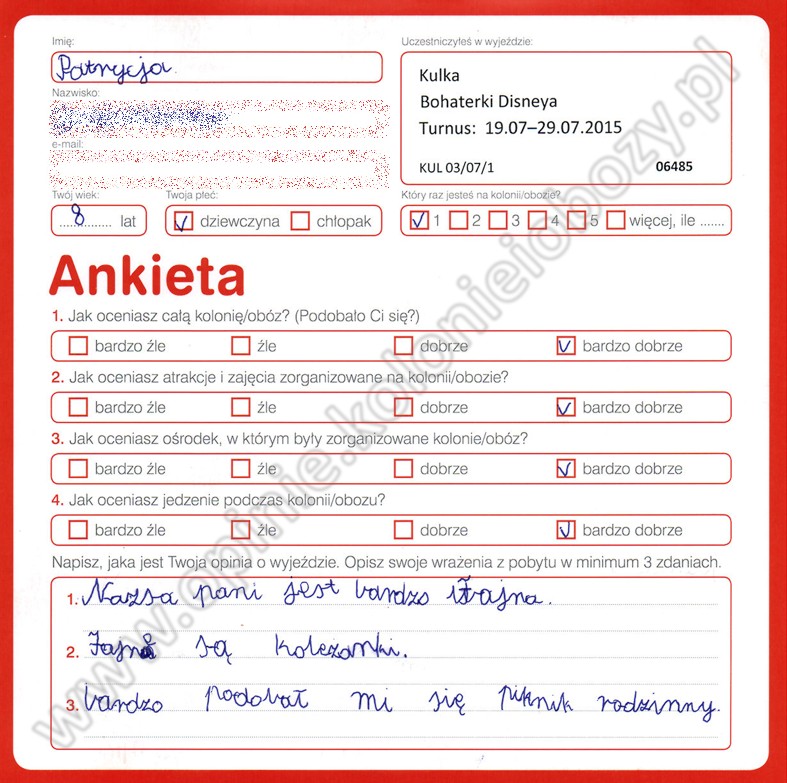 Imię:
Patrycja
Uczestniczyłeś w wyjeździe:
Kulka
Bohaterki Disneya
Turnus: 19.07–29.07.2015
KUL 03/07/1 06485
Nazwisko:
e-mail:
Twój wiek:
8 lat
Twoja płeć:
dziewczyna chłopak
Który raz jesteś na kolonii/obozie?
1 2 3 4 5 więcej, ile .......
Ankieta
1. Jak oceniasz całą kolonię/obóz? (Podobało Ci się?)
bardzo źle źle dobrze bardzo dobrze
2. Jak oceniasz atrakcje i zajęcia zorganizowane na kolonii/obozie?
bardzo źle źle dobrze bardzo dobrze
3. Jak oceniasz ośrodek, w którym były zorganizowane kolonie/obóz?
bardzo źle źle dobrze bardzo dobrze
4. Jak oceniasz jedzenie podczas kolonii/obozu?
bardzo źle źle dobrze bardzo dobrze
Napisz, jaka jest Twoja opinia o wyjeździe. Opisz swoje wrażenia z pobytu w minimum 3 zdaniach.
1. Nazsa pani jest bardzo fajna.
2. Fajne są koleżanki.
3. bardzo podobał mi się piknik rodzinny.
www.opinie.kolonieiobozy.pl